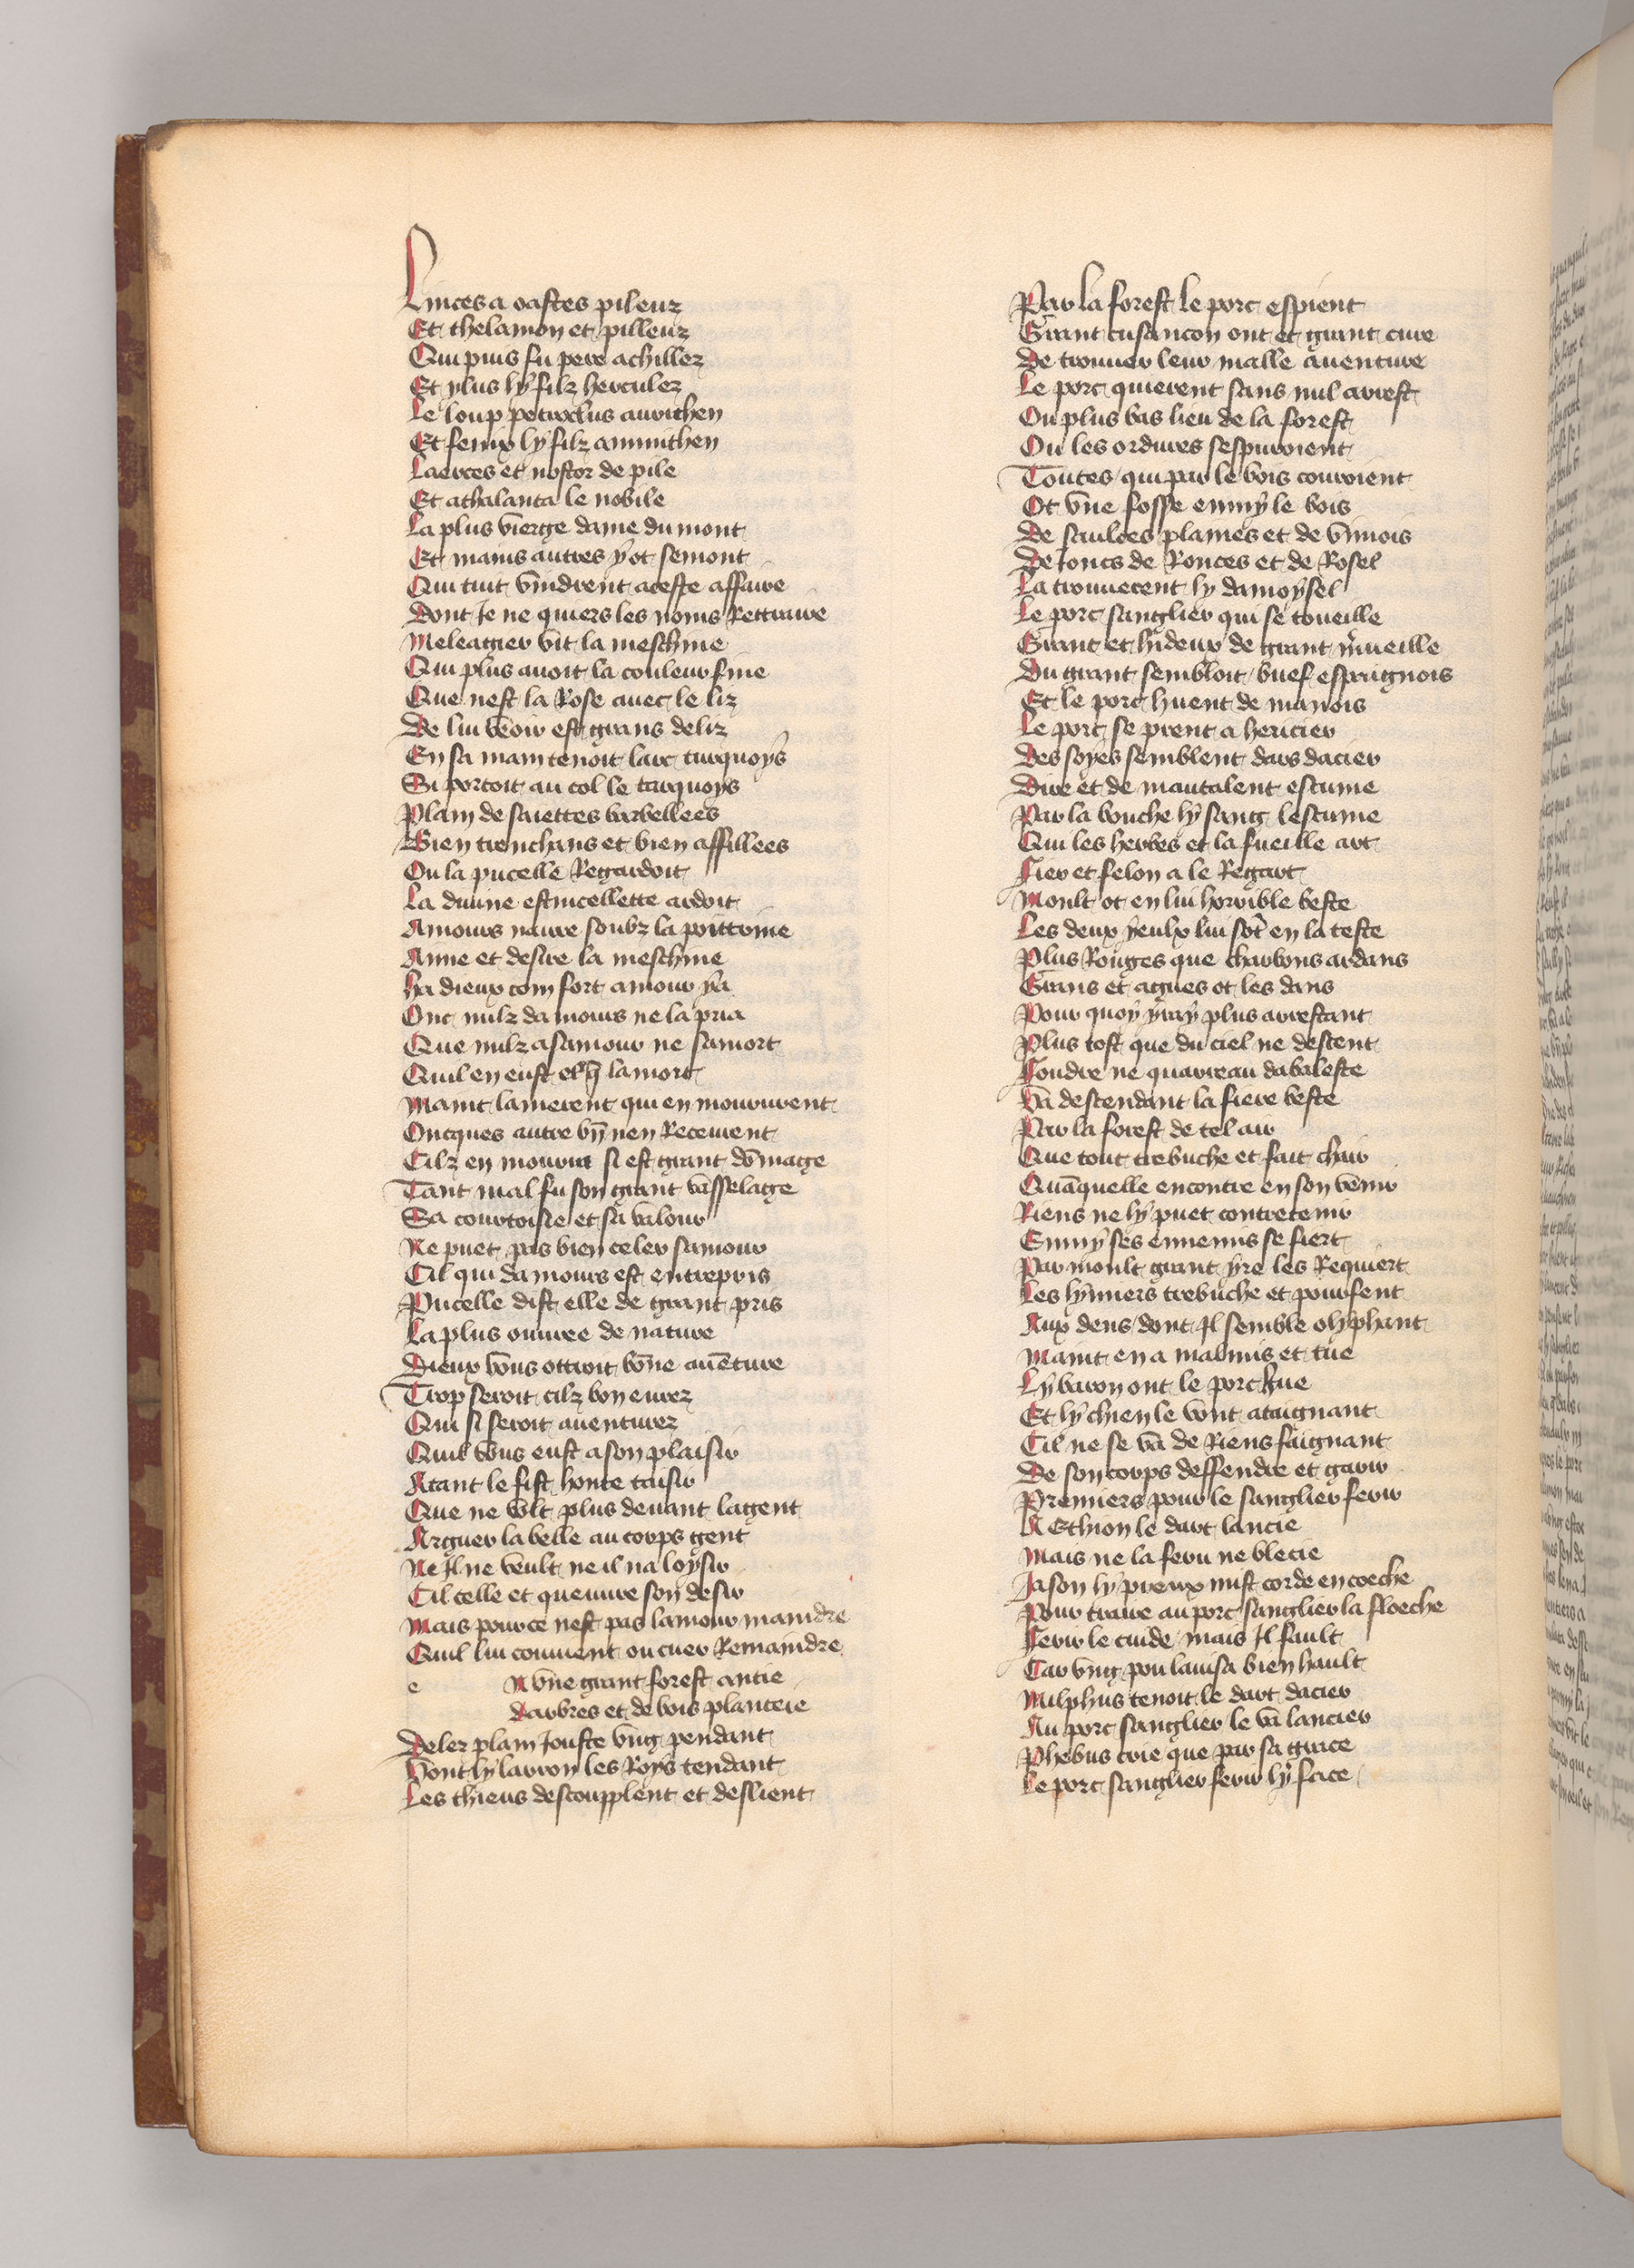 Linces a oastes pileuz
Et thelamon et pilleuz
Qui puis fu pere achillez
Et ylus ly filz herculez
Le loup petroclus aurichen
Et fenix ly filz aminthen
Laertes et nostor de pile
Et athalanta le nobile
La plus vierge dame du mont
Et mains autres y ot semont
Qui tuit vindrent a ceste affaire
Dont Je ne quiers les noms Rettraire
Meleagier vit la meschine
Qui plus auoit la couleur fine
Que nest la Rose auec le liz
De lui veoir est grans deliz
En sa main tenoit larc turquoys
Si portoit au col le tarquoys
Plain de saiettes barbellees
Bien trenchans et bien affillees
Ou la pucelle Regardoit
La diuine estincellette ardoit
Amours naure soubz la poittrine
Aime et desire la meschine
ha dieux com fort amour y a
Onc nulz damours ne la pria
Que nulz a samour ne samort
Quil en eust el q̄ la mort
Maint lamerent qui en moururent
Oncques autre bn̄ nen Receurent
Cilz en mourra si est grant dōmage
Tant mal fu son grant vasselage
Sa courtoisie et sa valour
Ne puet pas bien celer samour
Cil qui damours est entrepris
Pucelle dist elle de grant pris
La plus ouuree de nature
Dieux vous ottroit bōne auēture
Trop seroit cilz bon eurez
Qui si seroit auenturez
Quil vous eust a son plaisir
Atant le fist honte taisir
Que ne volt plus deuant lagent
Arguer la belle au corps gent
Ne Il ne veult ne il na loysir
Cil celle et queuure son desir
Mais pour ce nest pas lamour maindre
Quil lui conuient ou cuer Remaindre
e N vne grant forest antie
Darbres et de bois planteie
Delez plain Jouste vng pendant
Vont ly larron les Roys tendant
Les chiens descoupplent et deslient
Par la forest le porc espient
Grant cusancon ont et grant cure
De trouuer leur malle auenture
Le porc quierent sans nul arrest
Ou plus bas lieu de la forest
Ou les ordures sespuroient
Toutes qui par le bois couroient
Ot vne fosse enmy le bois
De saulces plames et de vimois
De Joncs de Ronces et de Rosel
La trouuerent ly damoysel
Le porc sanglier qui se toueille
Grant et hydeux de grant m̄ueille
Du grant sembloit buef espaignois
Et le porc huent de manois
Le porc se prent a hericier
Des soyes semblent dars dacier
Dire et de mautalent escume
Par la bouche ly sang lescume
Qui les herbes et la fueille art
Fier et felon a le Regart
Moult ot en lui horrible beste
Les deux yeulx lui sōt en la teste
Plus Rouges que charbons ardans
Grans et agues ot les dans
Pour quoy yray plus arrestant
Plus tost que du ciel ne descent
Foudre ne quarreau dabaleste
Va descendant la fiere beste
Par la forest de tel air
Que tout trebuche et fait chair
Quāquelle encontre en son venir
Riens ne ly puet contretenir
Enmy ses ennemis se fiert
Par moult grant yre les Requiert
Les lymiers trebuche et pourfent
Aux dens dont Il semble olyphant
Maint en a malmis et tue
Ly baron ont le porc hue
Et ly chien le vont ataignant
Cil ne se va de Riens faignant
De son corps deffendre et garir
Premiers pour le sanglier ferir
A Ethion le dart lancie
Mais ne la feru ne blecie
Jason ly preux mist corde en coche
Pour traire au porc sanglier la floeche
Ferir le cuide mais Il fault
Car vng pou lauisa bien hault
Milphus tenoit le dart dacier
Au porc sanglier le va lancier
Phebus crie que par sa grace
Le porc sanglier ferir ly face